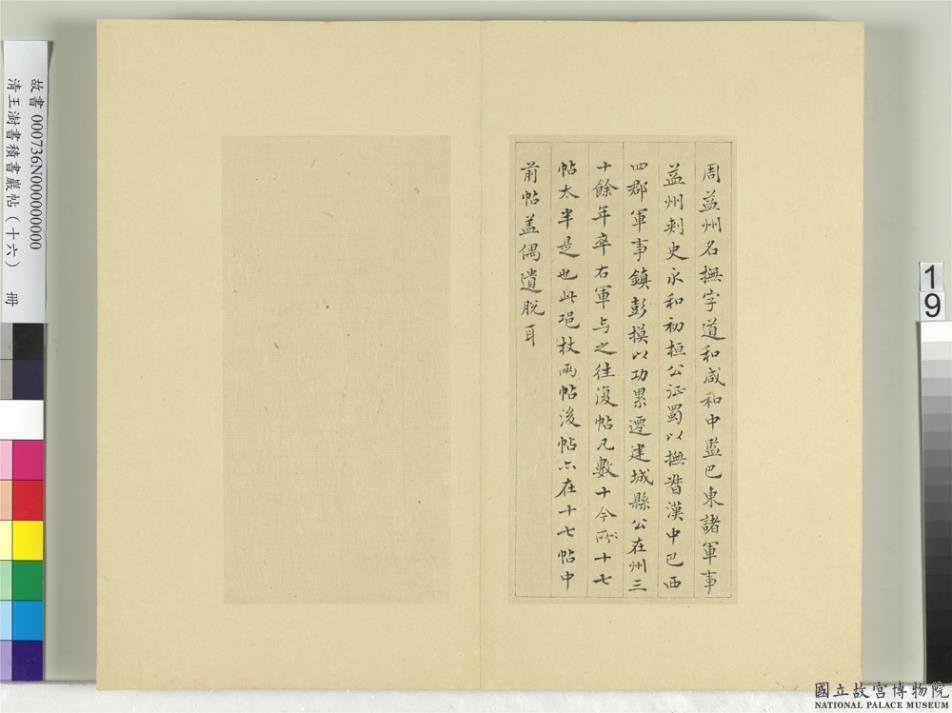 周益州名撫字道和咸和中監巴東諸軍事
益州刺史永和初桓公征蜀以撫督漢中巴西
四郡軍事鎮彭摸以功累遷建城縣公在州三
十餘年卒右軍与之往復帖凡數十今所十七
帖太半是也此邛杖兩帖後帖亦在十七帖中
前帖盖偶遺脫耳
故書 000736N000000000
清王澍書積書巖帖(十六) 冊
19
國立故宮博物院
NATIONAL PALACE MUSEUM